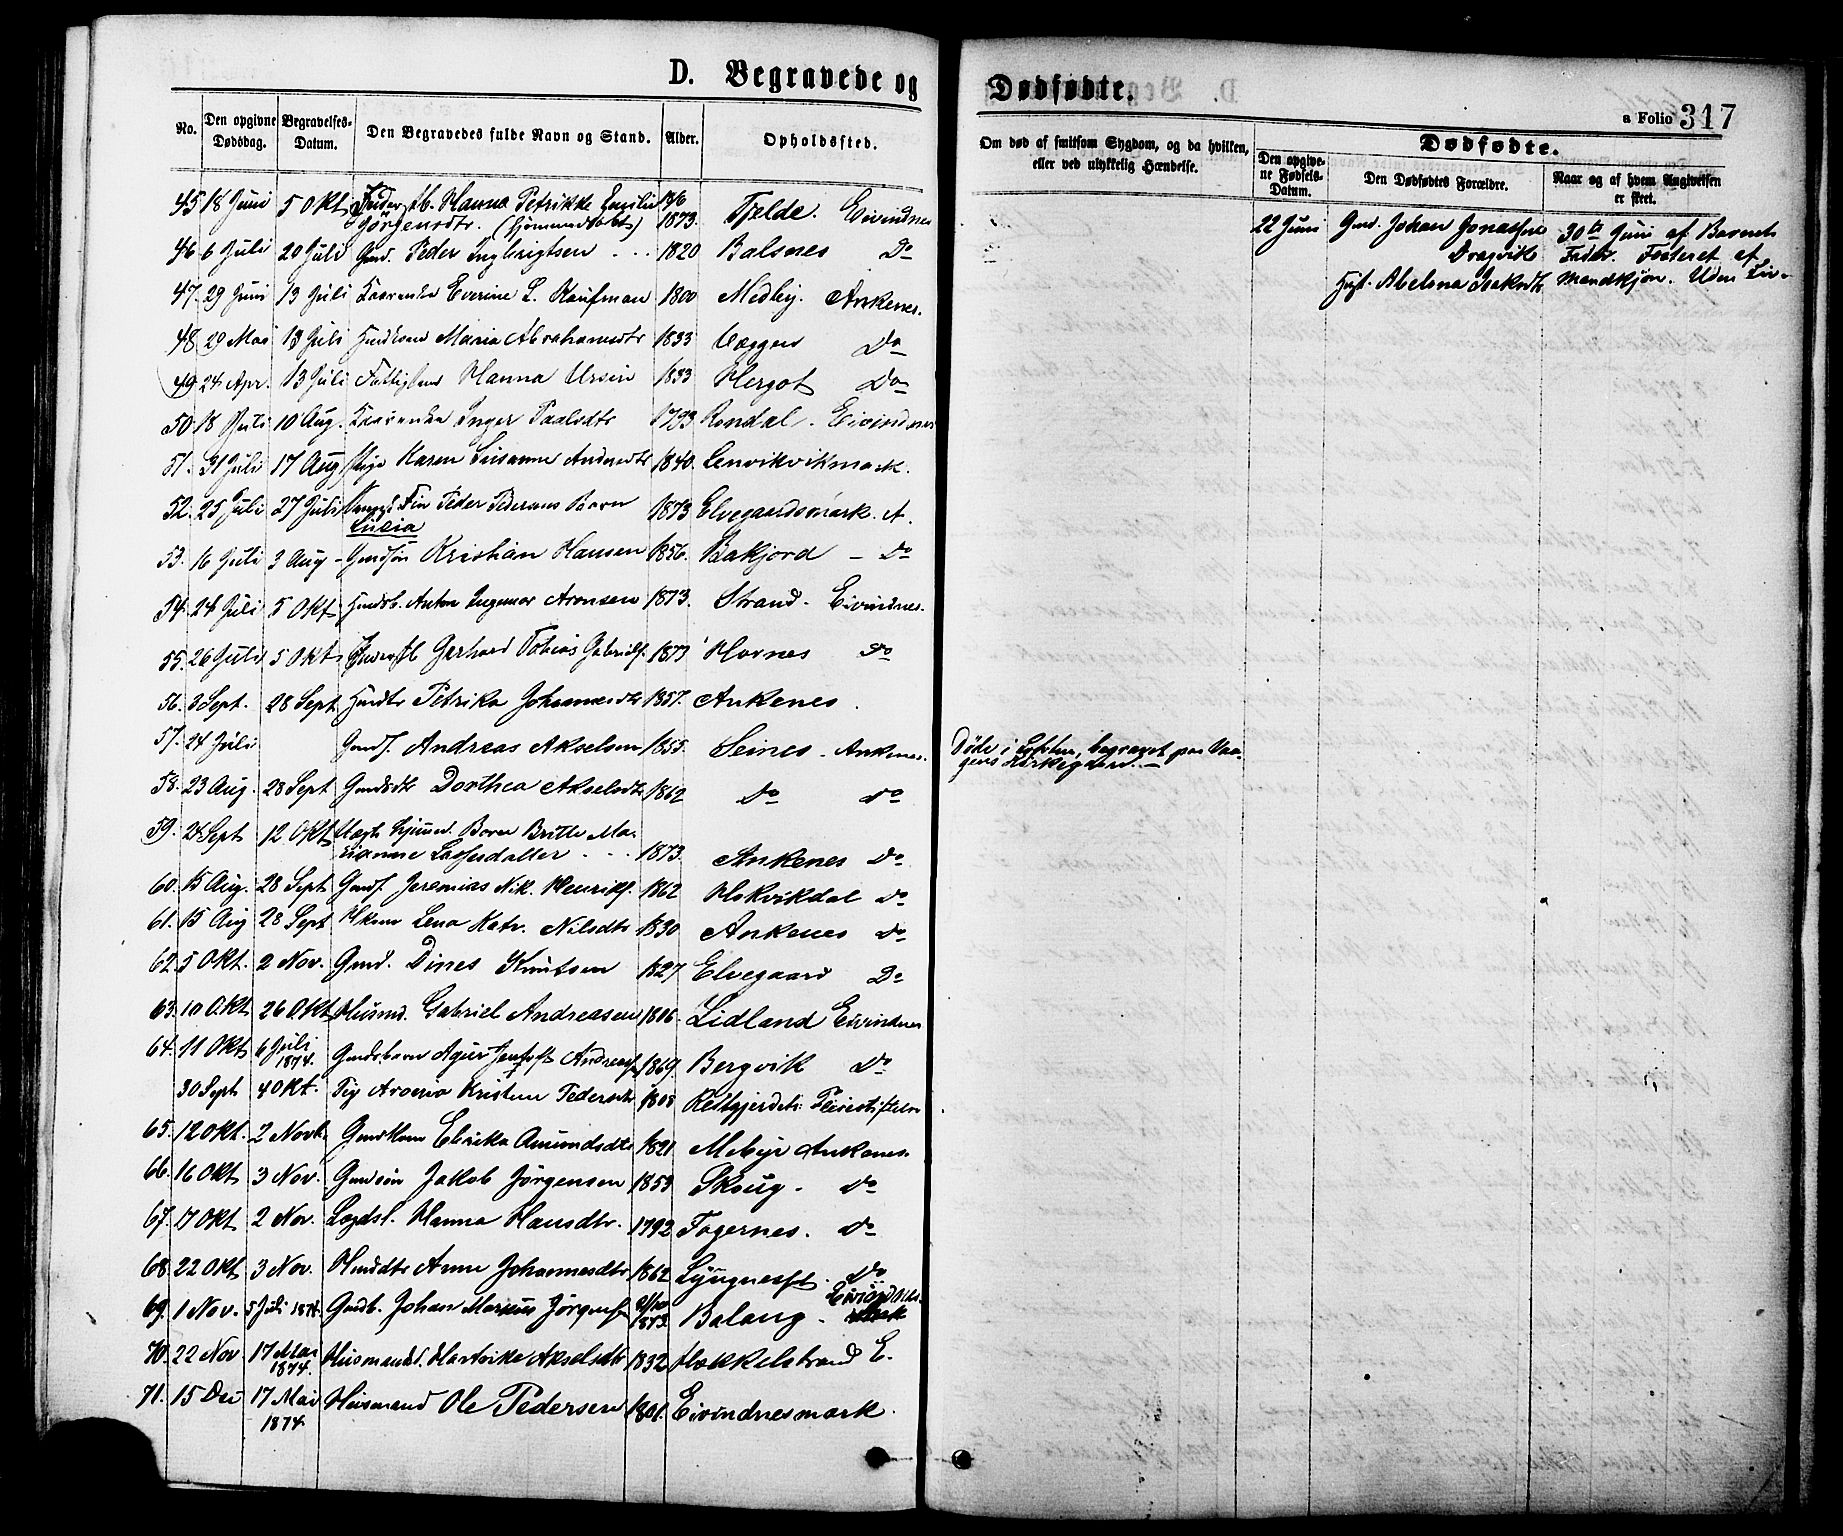 D. Begravede og
Dødfødte.
a Folio 317
No. Den opgivne Dødsdag. Begravelses-Datum. Den Begravedes fulde Navn og Stand. Alder. Opholdssted.
Om død af smitsom Sygdom, og da hvilken, eller ved ulykkelig Hændelse.
Dødfødte.
Den opgivne Fødsels-Datum. Den Dødfødtes Forældre. Naar og af hvem Angivelsen er skeet.
45 18 Juni 5 Okt Hanna Petrikke 1873 Fjelde. Eivindnes
Jørgensdtr.
46 6 Juli 20 Juli Gmd. Peder Ingbrigtsen . . . 1820 Balsnes Do
47. 29 Juni 13 Juli Kaarenke Everine L. Kaufman 1800 Medby. Ankenes.
48. 29 Mai 13 Juli Maria Abrahamsdtr 1833 Væggen Do
49 24 Apr. 13 Juli Hanna Ursin 1833 Hergot Do
50. 18 Juli 10 Aug. Kaarenke Inger Paalsdtr 1793 Rondal. Eivindnes
51. 31 Juli 17 Aug Pige Karen Susanne Andersdtr 1840. Lenvikvikmark.
52. 25 Juli 27 Juli Fin Peder Pedersens Barn 1873 Elvegaardsmark. A.
Lucia
53. 16 Juli 3 Aug - Gmdsøn Kristian Hansen 1856. Bakjord - Do
54. 24 Juli 5 Okt Anton Ingemar Aronsen 1873. Strand. Eivindnes.
55. 26 Juli 5 Okt Gerhard Tobias Gabrielf. 1873 Hornes Do
56. 3 Sept. 28 Sept Petrika Johannesdtr 1857. Ankenes.
57. 24 Juli Gmds. Andreas Akselsen 1855. Seines - Ankenes.
Døde i Lofoten, begravet paa Vaagens Kirkegaard. -
58. 23 Aug. 28 Sept Gmdsdtr Dorthea Akselsdtr 1862 Do Do
59. 24 Sept 12 Okt Barn Britte Ma-
rianne Lassesdatter . . . 1873. Ankenes Do
60. 15 Aug. 28 Sept Gmds. Jeremias Nik. Henriks. 1862 Hokvikdal Do
61. 15 Aug 28 Sept Hkone Lena Katr. Nilsdtr 1830 Ankenes Do
62. 5 Okt. 2 Nov. Gmd. Dines Knutsen 1827 Elvegaard Do
63. 10 Okt 26 Okt Husmd. Gabriel Andreasen 1806. Lidland Eivindnes
64. 11 Okt 6 Juli 1874. Gmdsbarn 1869. Bergvik Do
30 Sept 4 Okt. Kristine Pedersdtr 1808
65. 12 Okt. 2 Novb. Gmdkone Elrika Amundsdtr 1821 Meby Ankenes.
66. 16 Okt 3 Nov. Gmdsøn Jakob Jørgensen 1853 Skoug. Do
67. 17 Okt 2 Nov. Lægdsl. Hanna Hansdtr. 1792 Fagernes. Do
68. 22 Okt 3 Nov. Hmdsdtr Anne Johannesdtr 1862 Do
69. 1 Nov. 5 Juli 1874. Gmdb. Johan Markus Jørgens. 1873. Balang.
70. 22 Nov 17 Mai 1874. Hartvika Akselsdtr 1832 Hækkelstrand E.
71. 15 Dec 17 Mai 1874 Husmand Ole Pedersen 1801. Eivindnesmark.
22 Juni Gmd. Johan Jonassen 30te Juni af Barnets
Dragvik Fader. Fosteret af
Hust. Abelona Isaksdtr Mandkjøn. Uden Liv.